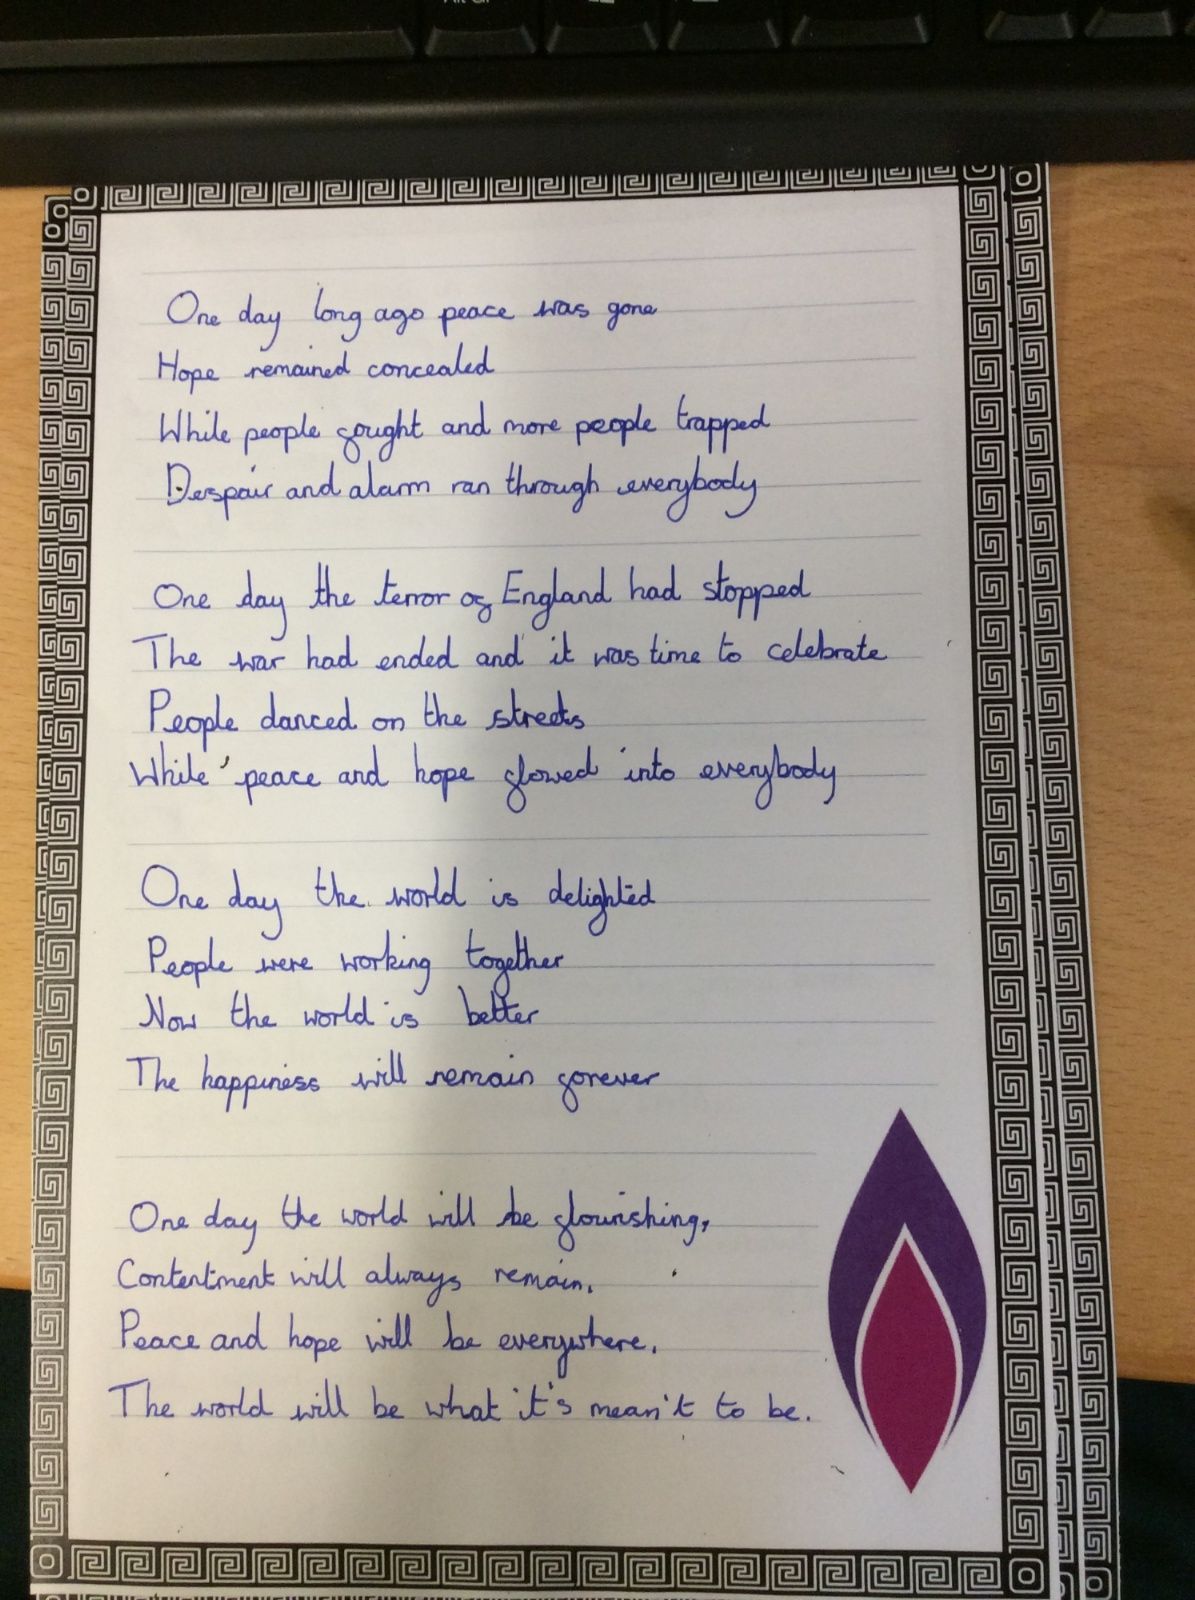 Alt Gr
One day long ago peace was gone
Hope remained concealed
While people fought and more people trapped
Despair and alarm ran through everybody
One day the terror of England had stopped
The war had ended and it was time to celebrate
People danced on the streets
While peace and hope flowed into everybody
One day the world is delighted
People were working together
Now the world is better
The happiness will remain forever
One day the world will be flourishing,
Contentment will always remain.
Peace and hope will be everywhere.
The world will be what it's mean't to be.